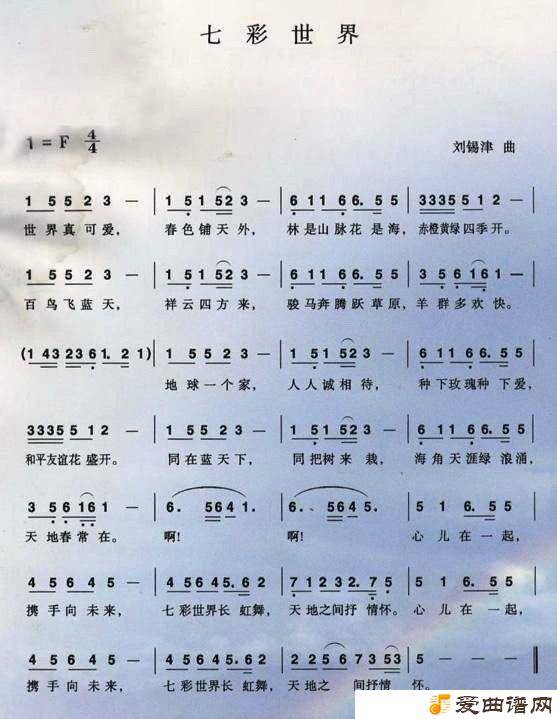 七彩世界
1 = F 4/4
刘锡津 曲
1 5 5 2 3 — | 1 51 52 3 — | 6 11 66. 55 | 3335 51 2 — |
世界真可爱， 春色铺天外， 林是山脉花是海， 赤橙黄绿四季开。
1 5 5 2 3 — | 1 51 52 3 — | 6 11 66. 55 | 3 56 161 — |
百鸟飞蓝天， 祥云四方来， 骏马奔腾跃草原， 羊群多欢快。
(1 43 2361. 21) | 1 55 2 3 — | 1 51 52 3 — | 6 11 66. 55 |
地球一个家， 人人诚相待， 种下玫瑰种下爱，
3335 51 2 — | 1 51 52 3 — | 1 51 52 3 — | 6 11 66. 55 |
和平友谊花盛开。 同在蓝天下， 同把树来栽， 海角天涯绿浪涌，
3 56 161 — | 6. 5641. | 6. 5645. | 51 6. 05 |
天地春常在。 啊! 啊! 心儿在一起，
4 56 2 — | 4 56 45. 62 | 7123 2. 75 | 51 6. 05 |
携手向未来， 七彩世界长虹舞， 天地之间抒情怀。 心儿在一起，
4 56 2 — | 4 56 45. 62 | 1 56 723 53 | 5 — — — ‖
携手向未来， 七彩世界长虹舞， 天地之间抒情怀。
爱曲谱网